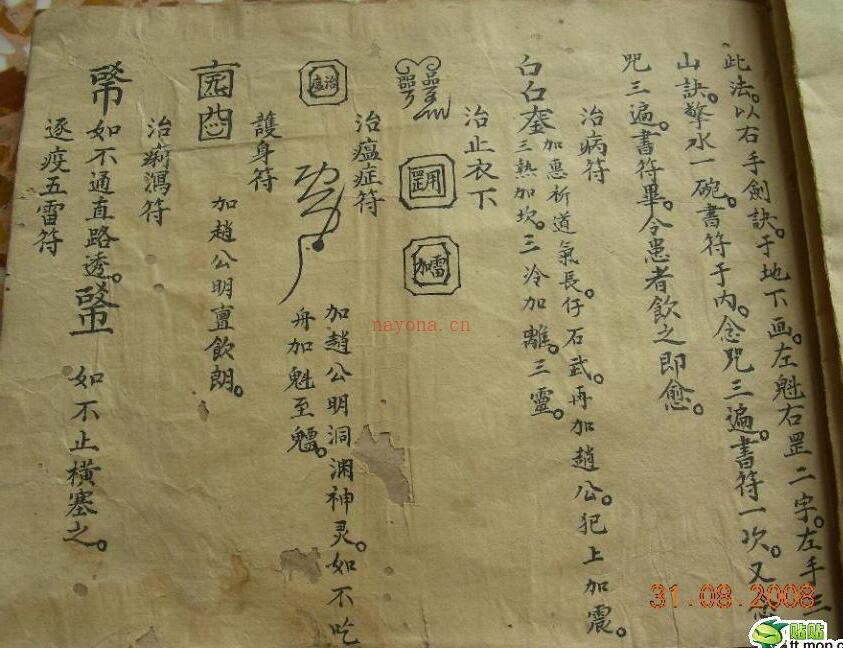 此法。以右手劍訣。于地下画。左魁右罡二字。左手三
山訣。擎水一碗。書符于內。念咒三遍。書符一次。又念
咒三遍。書符畢。令患者飲之即愈。
治病符
加惠祈道氣長。仔石武。再加趙公。犯上加震。
三熱加坎。三冷加離。三靈
治止衣下
治瘟症符
加趙公明洞渊神灵。如不吃
舟加魁至
護身符
加趙公明亶飲朗。
治瀉符
如不通直路透。
如不止橫塞之。
逐疫五雷符
nayona.cn
31.08.2008
贴贴
tt.mop.c